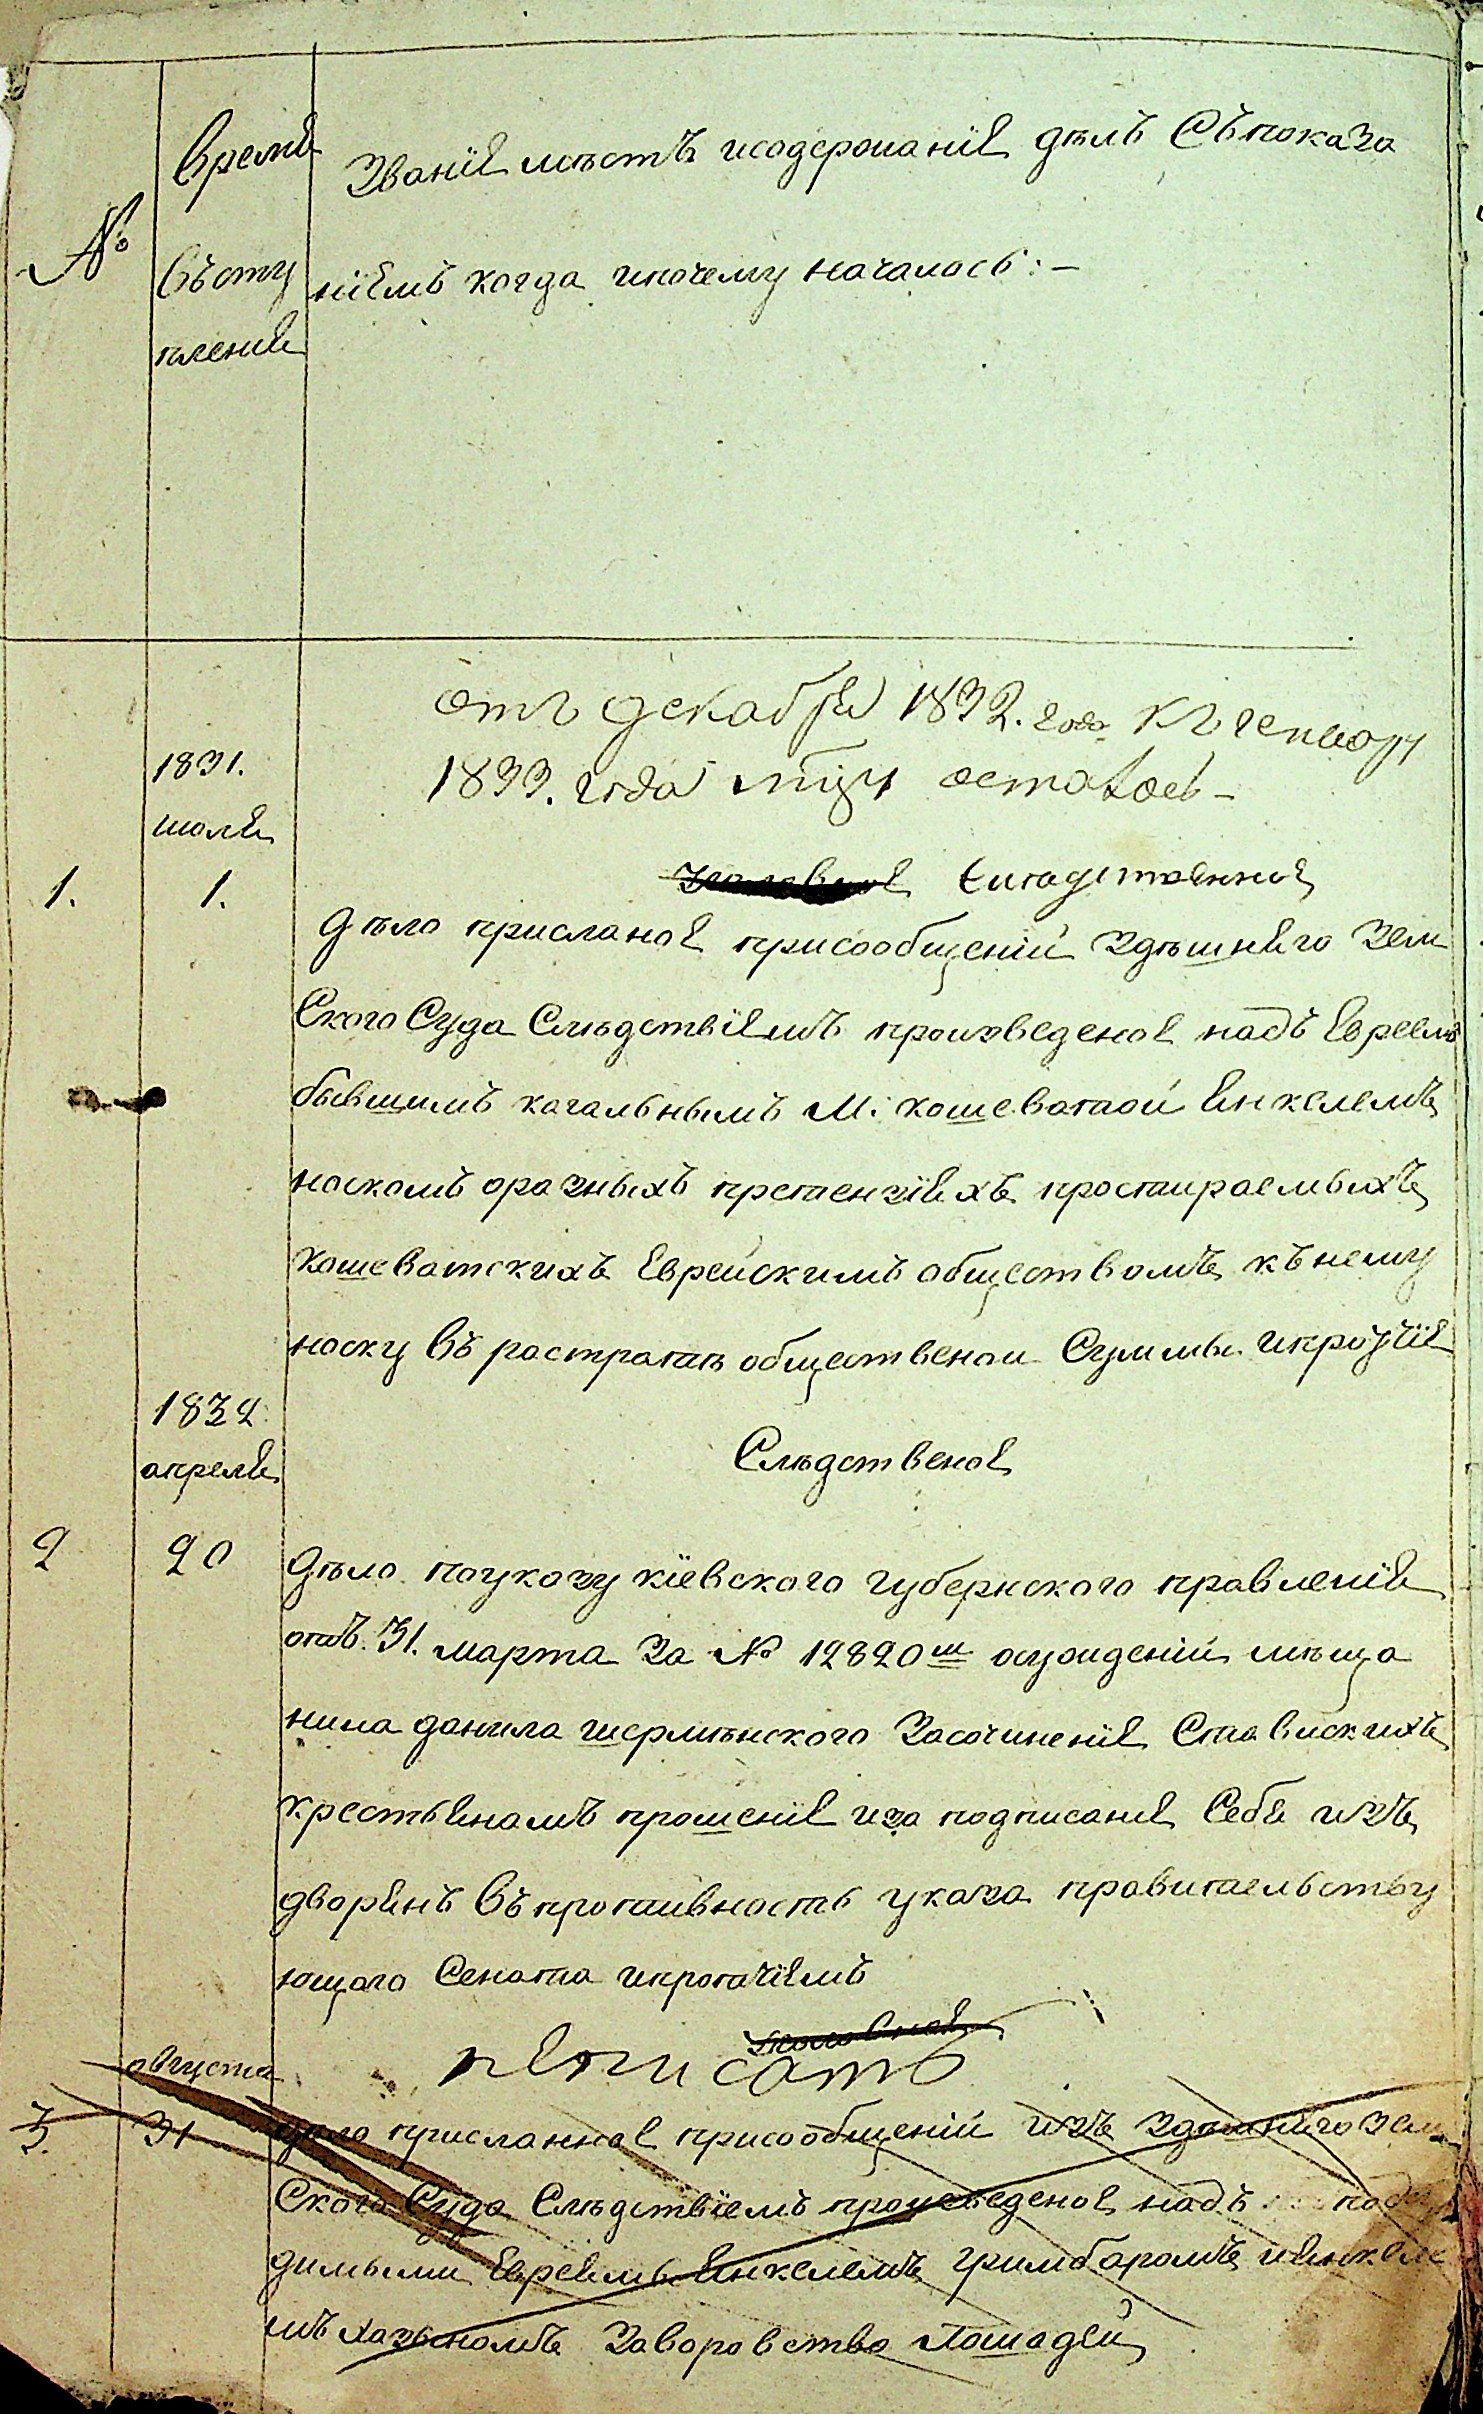 №
Время
въсту
пления
Званїе местъ исодержанїе делъ Съпоказа
нїемъ когда ипочему началось: —
отъ декабря 1832. года Къ генварю
1833. года осталось —
1831.
июля
1. 1.
Следственное
Дело присланое присообщенїи Здешняго Зем
Ского Суда Следствїемъ произведеное надъ Евреемъ
бывшимъ кагальнымъ М: Кошеватой Янкелемъ
оразныхъ претензїяхъ простираемыхъ
Кошеватскихъ Еврейскимъ обществомъ къ нему
въ растрате общественои Суммы ипротчїе
1832
апреля
Следственое
2 20
Дело поуказу кїевского губернского правленїя
отъ 31. марта За № 12820м осужденїи меща
нина данила шерменского Засочиненїе Ставискихъ
крестьянамъ прошенїе иза подписание Себя изъ
дворянъ въпротивность указа правительству
ющаго Сената ипротчїемъ
уголовное
неписать
августа
3. 31
дело присланное присообщенїи изъ Здешняго Зем
Ского Суда Следствїемъ произведеное надъ
димыми Евреями Янкелемъ гримбаромъ иянкеле
мъ Хазыномъ Заворовство Лошадей